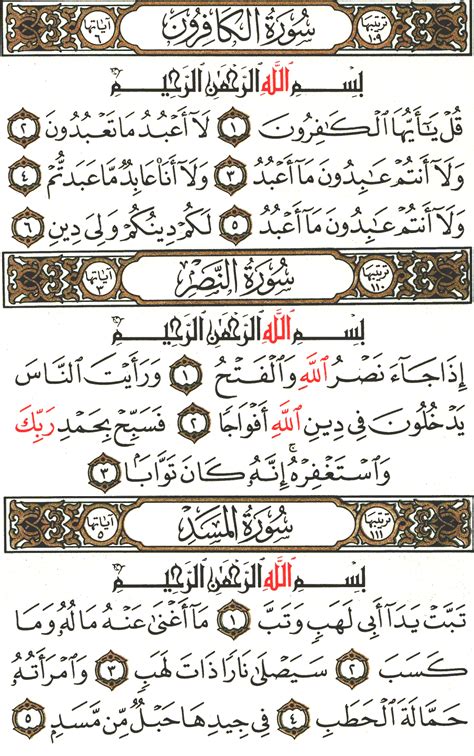 ترتيبها ١٠٩ سورة الكافرون آياتها ٦
بِسْمِ اللَّهِ الرَّحْمَٰنِ الرَّحِيمِ
قُلْ يَٰٓأَيُّهَا الْكَٰفِرُونَ ١ لَآ أَعْبُدُ مَا تَعْبُدُونَ ٢
وَلَآ أَنتُمْ عَٰبِدُونَ مَآ أَعْبُدُ ٣ وَلَآ أَنَا۠ عَابِدٌ مَّا عَبَدتُّمْ ٤
وَلَآ أَنتُمْ عَٰبِدُونَ مَآ أَعْبُدُ ٥ لَكُمْ دِينُكُمْ وَلِيَ دِينِ ٦
ترتيبها ١١٠ سورة النصر آياتها ٣
بِسْمِ اللَّهِ الرَّحْمَٰنِ الرَّحِيمِ
إِذَا جَآءَ نَصْرُ اللَّهِ وَالْفَتْحُ ١ وَرَأَيْتَ النَّاسَ
يَدْخُلُونَ فِي دِينِ اللَّهِ أَفْوَاجًا ٢ فَسَبِّحْ بِحَمْدِ رَبِّكَ
وَاسْتَغْفِرْهُ ۚ إِنَّهُ كَانَ تَوَّابًۢا ٣
ترتيبها ١١١ سورة المسد آياتها ٥
بِسْمِ اللَّهِ الرَّحْمَٰنِ الرَّحِيمِ
تَبَّتْ يَدَآ أَبِي لَهَبٍ وَتَبَّ ١ مَآ أَغْنَىٰ عَنْهُ مَالُهُ وَمَا
كَسَبَ ٢ سَيَصْلَىٰ نَارًا ذَاتَ لَهَبٍ ٣ وَامْرَأَتُهُ
حَمَّالَةَ الْحَطَبِ ٤ فِي جِيدِهَا حَبْلٌ مِّن مَّسَدٍ ٥